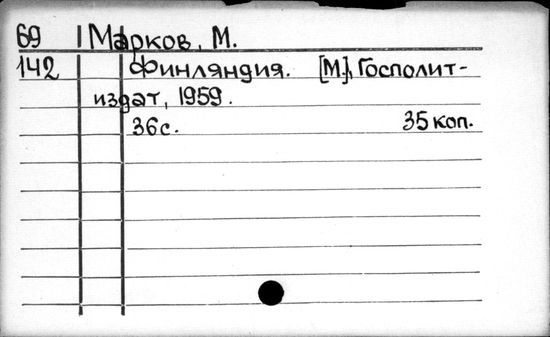 69 Марков, М.
142 Финляндия. [М.], Госполит-
издат, 1959.
36с. 35 коп.